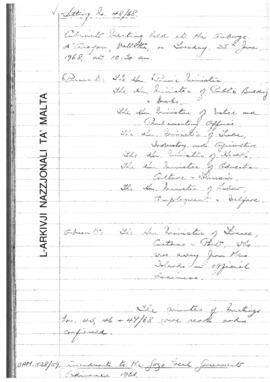 Sitting No. 48/68
Cabinet Meeting held at the Auberge
d'Aragon, Valletta, on Tuesday, 25th June
1968, at 10.30 am
Present: The Hon. Prime Minister
The Hon. Minister of Public Building
& Works.
The Hon. Minister of
Parliamentary Affairs
The Hon. Minister of Trade,
Industry and Agriculture
The Hon. Minister of Health.
The Hon. Minister of Education
Culture & Tourism.
The Hon. Minister of Labour,
Employment & Welfare.
Absent: The Hon. Minister of Finance,
Customs & Port, who
was away from these
Islands on official
business.
The minutes of meetings
Nos. 45, 46 & 47/68 were read and
confirmed.
Amendments to the Gozo Local Government
Ordinance 1960.
L-ARKIVJI NAZZJONALI TA' MALTA